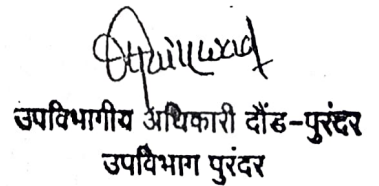 उपविभागीय अधिकारी दौंड-पुरंदर
उपविभाग पुरंदर